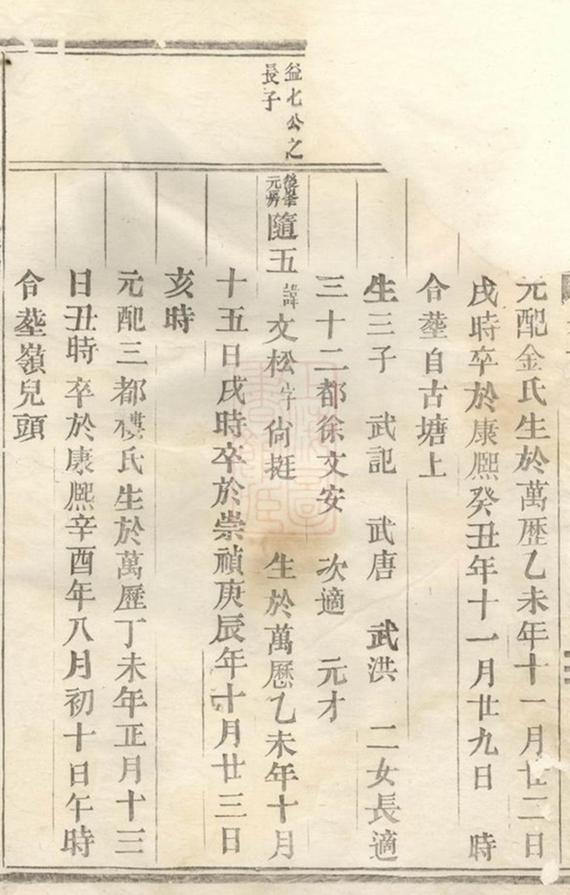 元配金氏生於萬歷乙未年十一月廿二日
戌時卒於康熈癸丑年十一月廿九日　時
合塟自古塘上
生三子　武記　武唐　武洪　二女長適
三十二都徐文安　次適　元才
益七公之
長子
隨五　諱文松字尙挺　生於萬懸乙未年十月
十五日戌時卒於崇禎庚辰年十月廿三日
亥時
元配三都樓氏生於萬歷丁未年正月十三
日丑時卒於康熈辛酉年八月初十日午時
合塟嶺兒頭